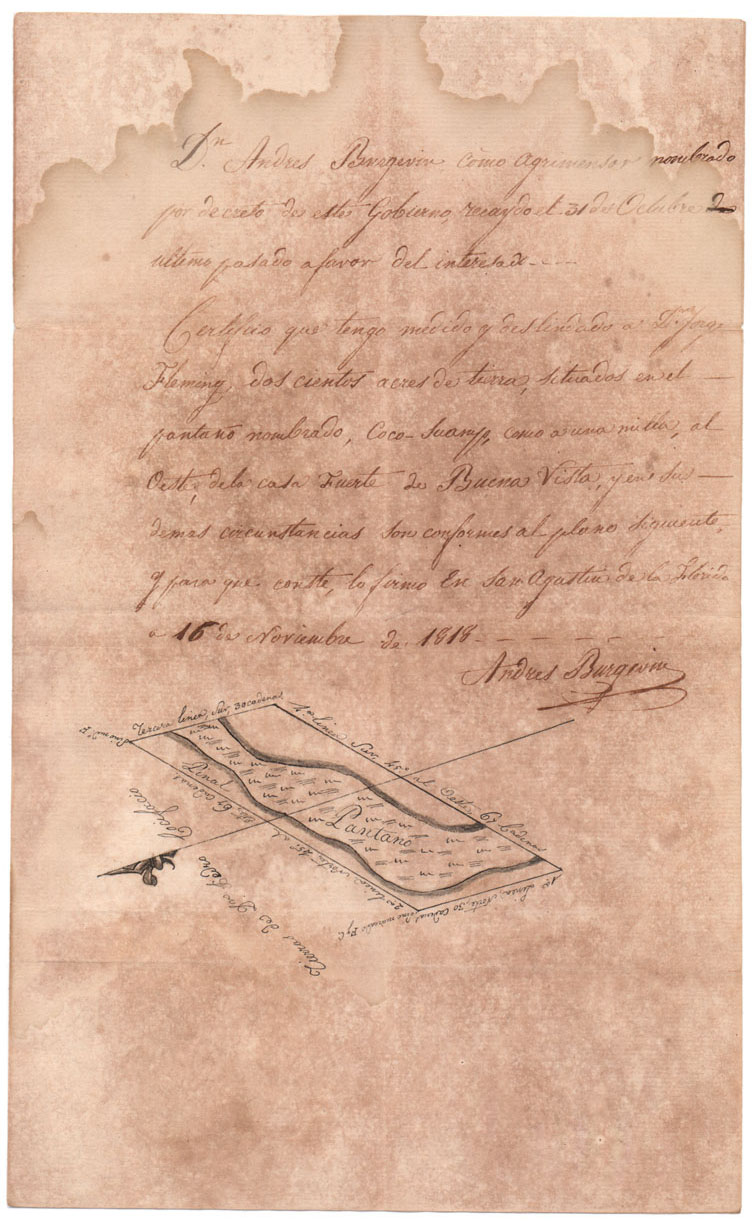 Dn. Andres Burgevin como agrimensor nombrado
por decreto de este Gobierno, recaydo el 31 de Octubre
ultimo pasado a favor del interesado - - - -
Certifico que tengo medido y deslindado a Dn. Jorge
Fleming, dos cientos acres de tierra, situados en el —
pantano nombrado, Coco-Suamp, como a una milla, al
Oeste, de la casa Fuerte de Buena Vista, y en sus —
demas circunstancias son conformes al plano siguiente,
y para que conste, lo firmo En San Agustin de la Florida
a 16 de Noviembre de 1818 - - - -
Andres Burgevin
Tercera linea, Sur, 30 cadenas
linea Sur, al Oeste 67 Cadenas
Pinal
Pantano
2da linea Norte 45° al 67 Cadenas
linea, Norte, 30 Cadenas
Tierras de Dn. Pedro
Cocifacio